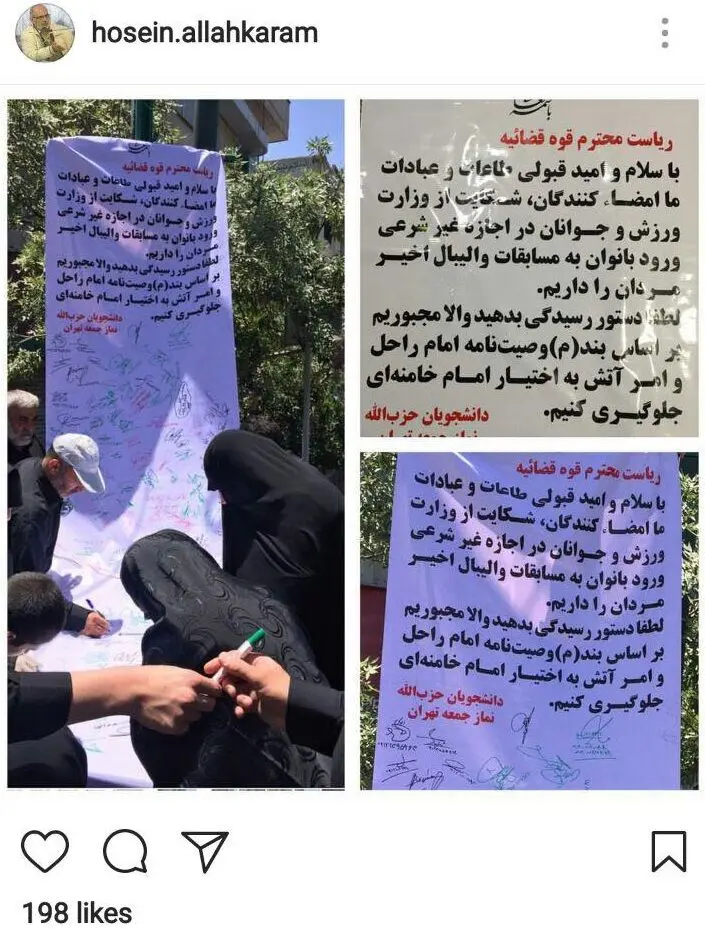 hosein.allahkaram
ریاست محترم قوه قضائیه
با سلام و امید قبولی طاعات و عبادات
ما امضاء کنندگان، شکایت از وزارت
ورزش و جوانان در اجازه غیر شرعی
ورود بانوان به مسابقات والیبال اخیر
مردان را داریم.
لطفا دستور رسیدگی بدهید والا مجبوریم
بر اساس بند(م)وصیت‌نامه امام راحل
و امر آتش به اختیار امام خامنه‌ای
جلوگیری کنیم.
دانشجویان حزب‌الله
نماز جمعه تهران
باسمه
ریاست محترم قوه قضائیه
با سلام و امید قبولی طاعات و عبادات
ما امضاء کنندگان، شکایت از وزارت
ورزش و جوانان در اجازه غیر شرعی
ورود بانوان به مسابقات والیبال اخیر
مردان را داریم.
لطفا دستور رسیدگی بدهید والا مجبوریم
بر اساس بند(م)وصیت‌نامه امام راحل
و امر آتش به اختیار امام خامنه‌ای
جلوگیری کنیم.
دانشجویان حزب‌الله
نماز جمعه تهران
ریاست محترم قوه قضائیه
با سلام و امید قبولی طاعات و عبادات
ما امضاء کنندگان، شکایت از وزارت
ورزش و جوانان در اجازه غیر شرعی
ورود بانوان به مسابقات والیبال اخیر
مردان را داریم.
لطفا دستور رسیدگی بدهید والا مجبوریم
بر اساس بند(م)وصیت‌نامه امام راحل
و امر آتش به اختیار امام خامنه‌ای
جلوگیری کنیم.
دانشجویان حزب‌الله
نماز جمعه تهران
198 likes